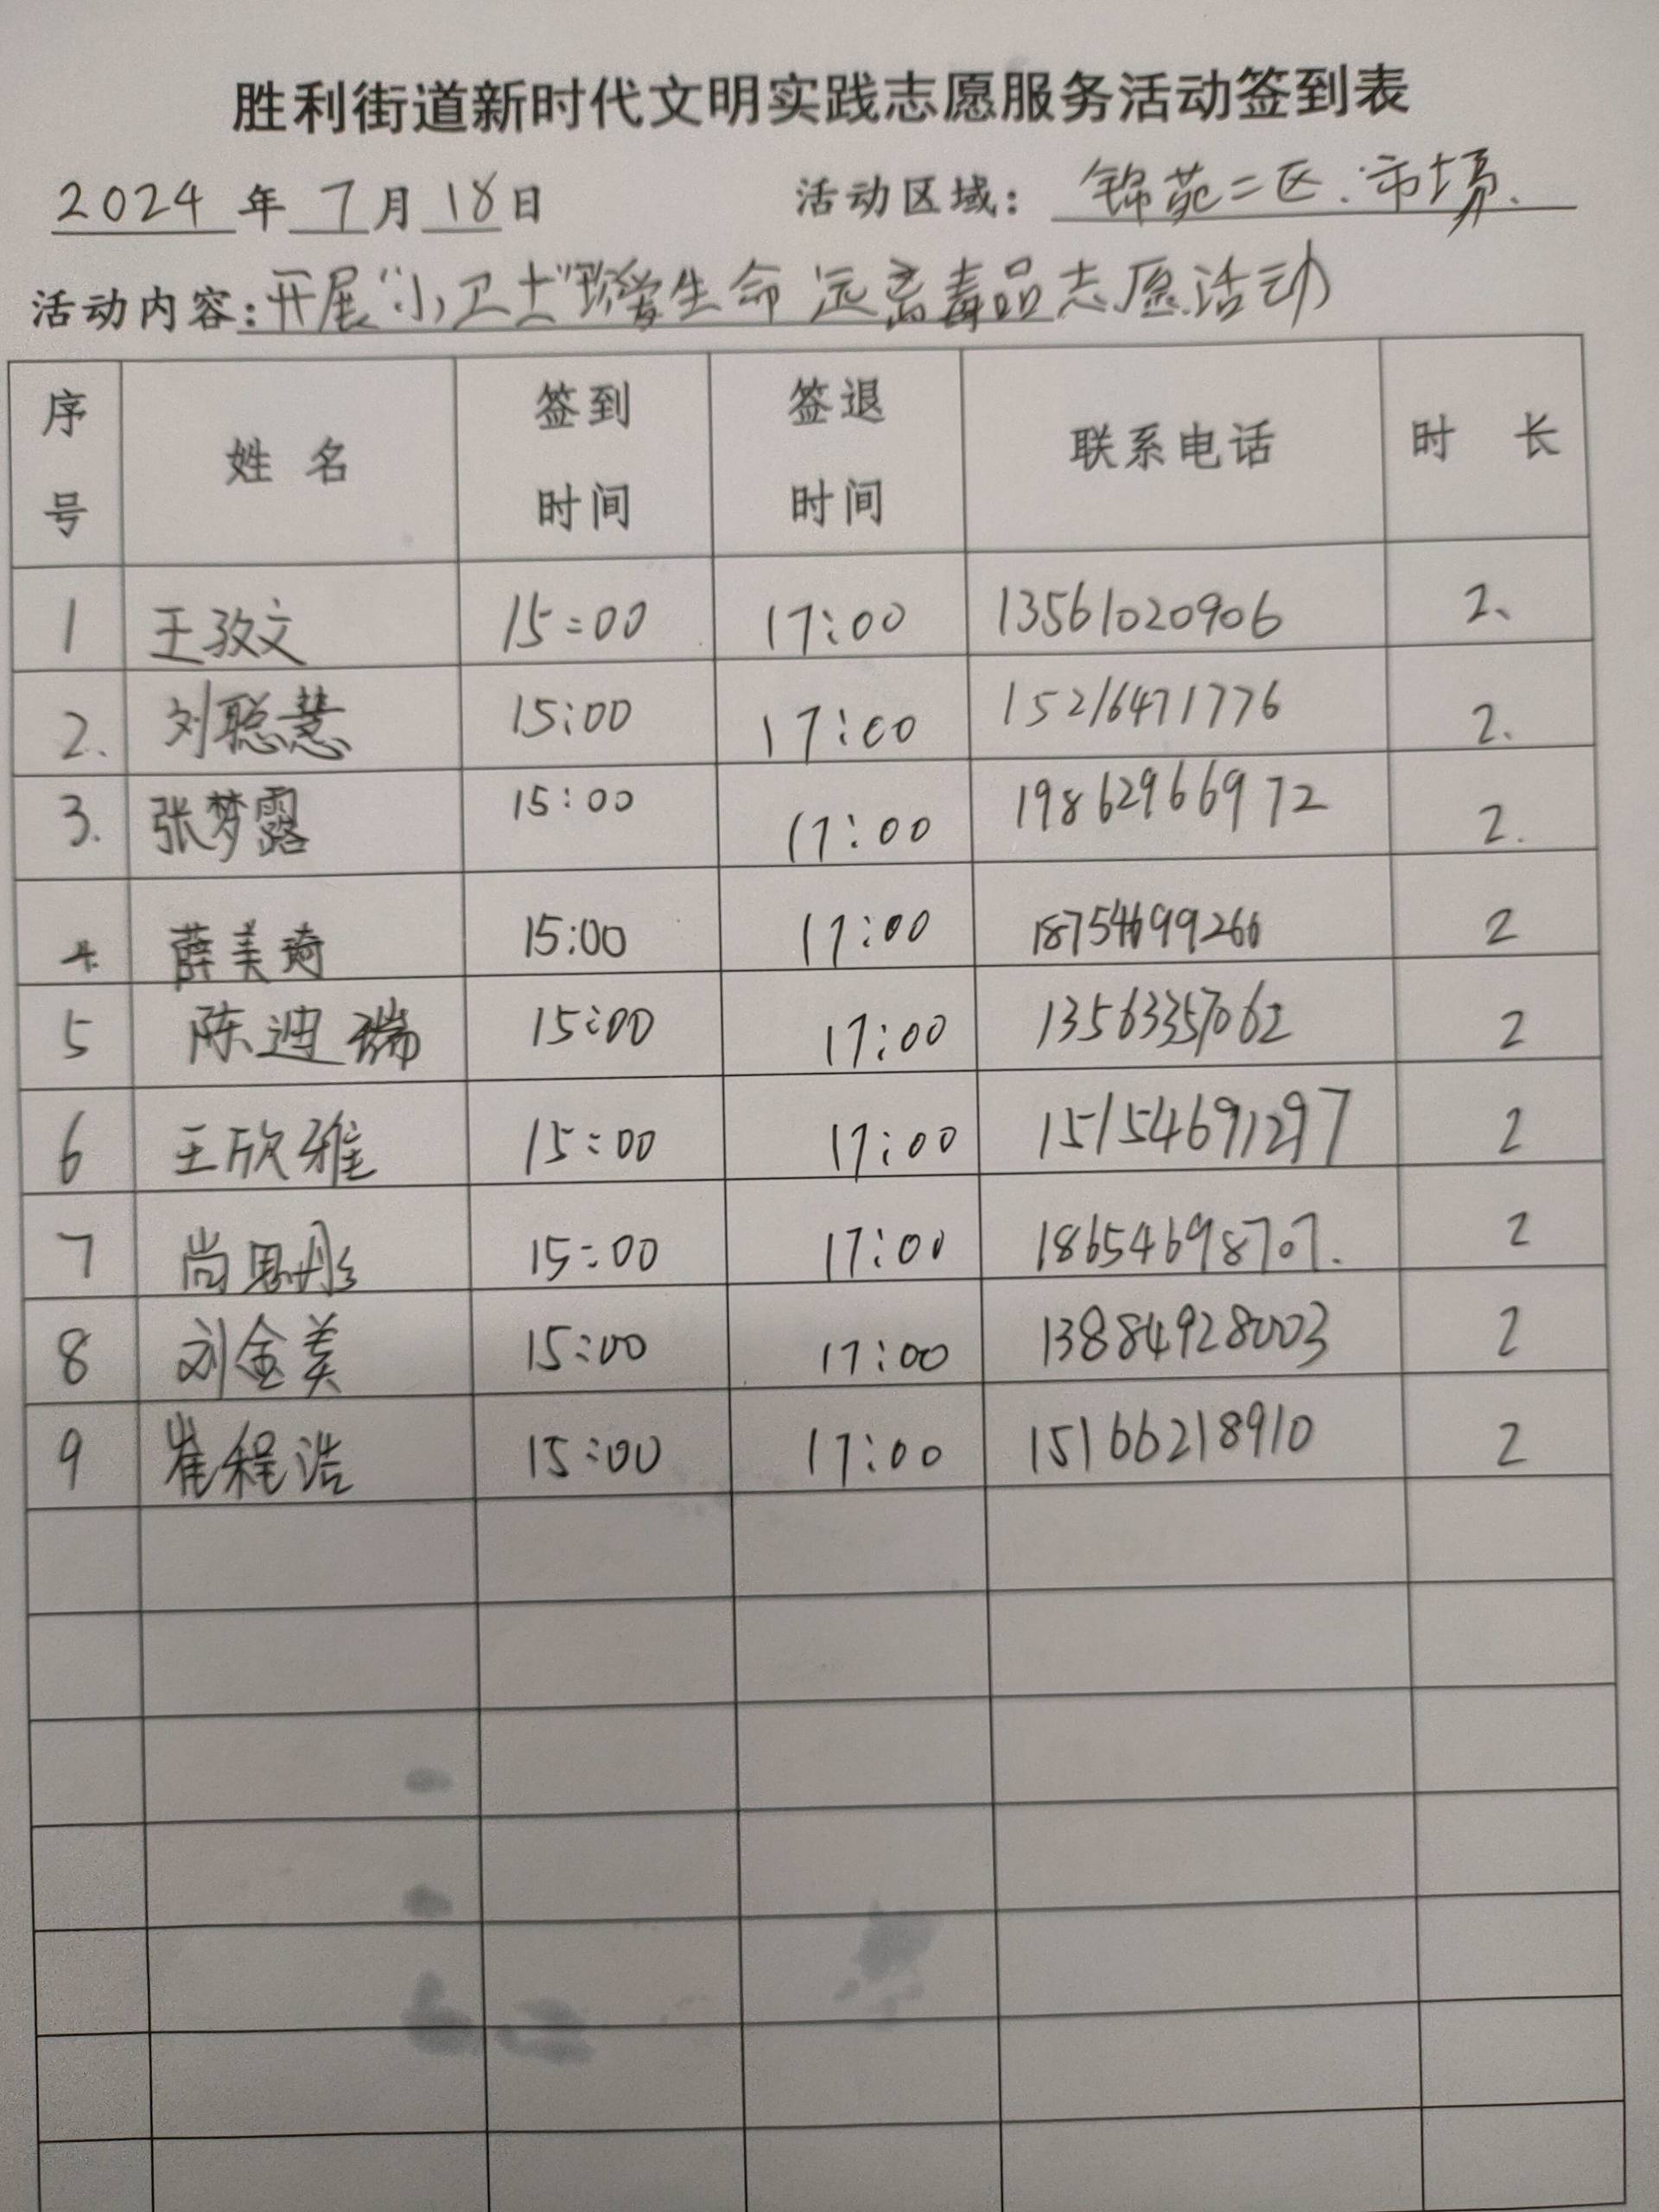 胜利街道新时代文明实践志愿服务活动签到表
2024 年 7 月 18 日 活动区域: 锦苑二区.市场.
活动内容:开展“小卫士”珍爱生命 远离毒品志愿活动
序号 姓名 签到时间 签退时间 联系电话 时长
1 王孜文 15:00 17:00 13561020906 2、
2. 刘聪慧 15:00 17:00 15216471776 2.
3. 张梦露 15:00 17:00 19862966972 2.
4. 薛美琦 15:00 17:00 18754699266 2
5 陈迪瑞 15:00 17:00 13563357062 2
6 王欣雅 15:00 17:00 15154691297 2
7 尚思彤 15:00 17:00 18654698707. 2
8 刘金美 15:00 17:00 13884928003 2
9 崔程浩 15:00 17:00 15166218910 2